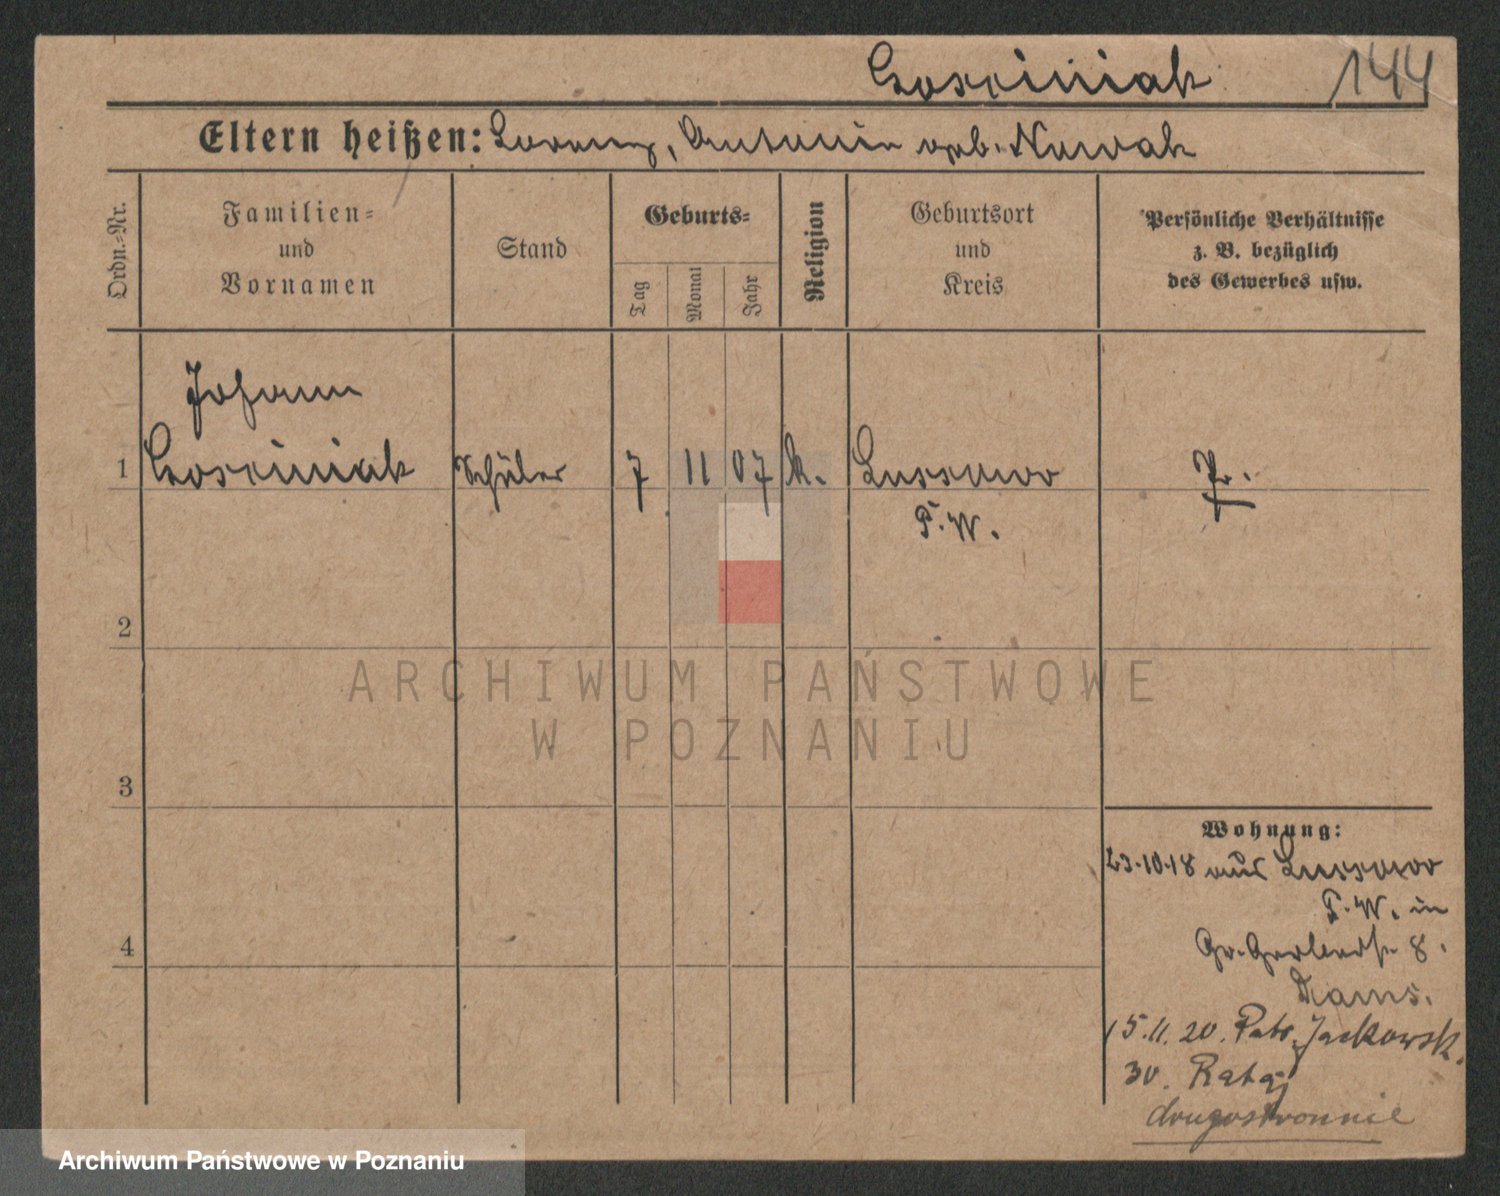 Losciniak 144
Eltern heißen: Lorenz, Antonie geb. Nowak
Ordn.-Nr.
Familien-
und
Vornamen
Stand
Geburts-
Tag
Monat
Jahr
Religion
Geburtsort
und
Kreis
Persönliche Verhältnisse
z. B. bezüglich
des Gewerbes usw.
Johann
1 Losciniak Schüler 7 11 07 k. Lussowo Pr.
P. W.
2
3
4
Wohnung:
23.10.18 aus Lussowo
P. W. in
Gr. Gerberstr. 8.
15.11.20. Patr. Jackowsk.
30. Rataj
drugostronnie
ARCHIWUM PAŃSTWOWE
W POZNANIU
Archiwum Państwowe w Poznaniu